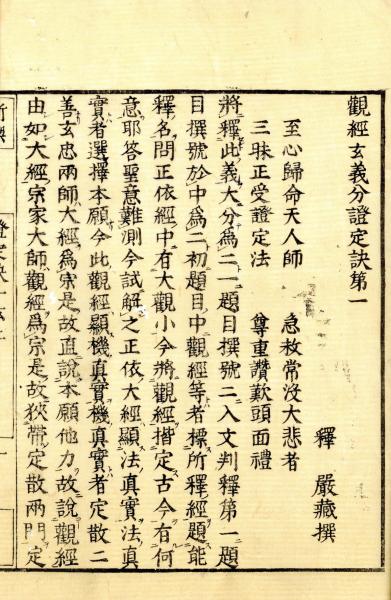 觀經玄義分證定訣第一
釋　嚴藏撰
至心歸命天人師　急救常沒大悲者
三昧正受證定法　尊重讚歎頭面禮
將釋此義大分爲二一題目撰號二入文判釋第一題
目撰號於中爲二初題目中觀經等者標所釋經題能
釋名問正依經中有大觀小今將觀經揩定古今有何
意耶答聖意難測今試解之正依大經顯法真實法真
實者選擇本願今此觀經顯機真實機真實者定散二
善玄忠兩師大經爲宗是故直說本願他力故說觀經
由如大經宗家大師觀經爲宗是故狹帶定散兩門定